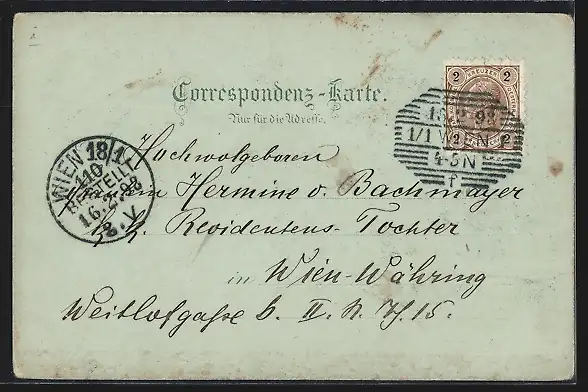 2 KREUZER 2
Correspondenz-Karte.
Nur für die Adresse.
1/1 WIEN
4-5N
f
WIEN 18/1
110
BESTELLT
16.2.98
8.V
Hochwolgeboren
Hermine v. Bachmayer
Revidentens-Tochter
in Wien-Währing
Weitlofgaße 6. II. St. Th. 15.